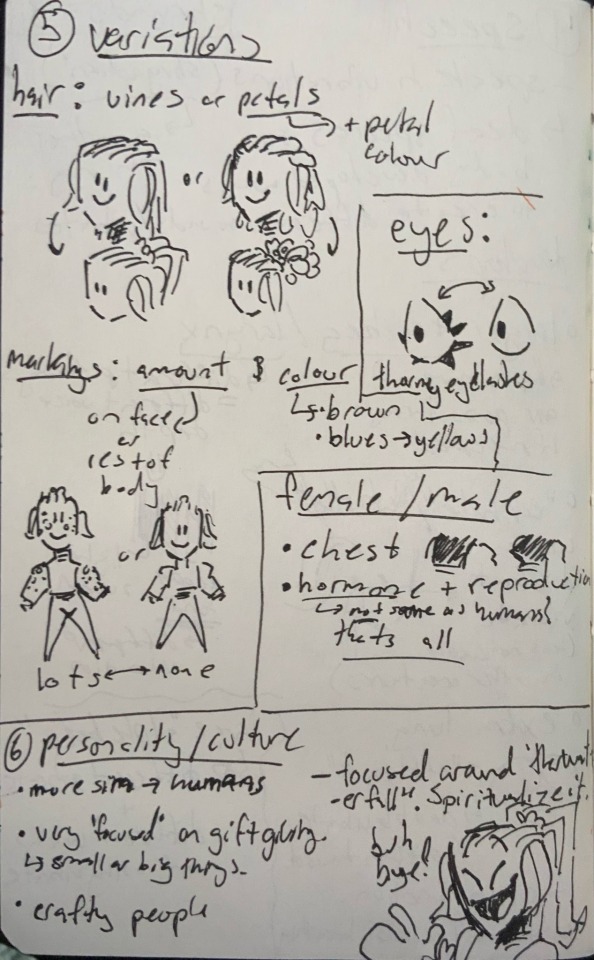 ⑤ variations
hair: vines or petals
+ petal
colour
or
eyes:
thorney eyelashes
markings: amount & colour
on face
or
rest of
body
• brown
• blues → yellows
or
lots ↔ none
female / male
• chest
• hormone + reproduction
↳ not same as humans
that's all
⑥ personality/culture
• more sim → humans
• very 'focused' on giftgiving.
↳ small or big things.
• crafty people
- focused around
Spiritualize it.
buh
bye!